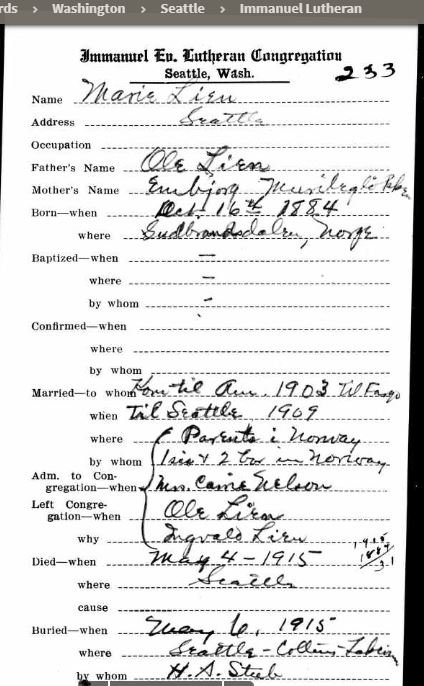 rds › Washington › Seattle › Immanuel Lutheran
Immanuel Ev. Lutheran Congregation
Seattle, Wash. 233
Name Marie Lien
Address Seattle
Occupation
Father's Name Ole Lien
Mother's Name Embjorg
Born—when Oct. 16th 1884
where Gudbrandsdalen, Norge
Baptized—when —
where —
by whom -
Confirmed—when
where
by whom
Married—to whom Kom til Am. 1903 Til Fargo
when Til Seattle 1909
where Parents i Norway
by whom 1 sis + 2 bro in Norway
Adm. to Con-
gregation—when Mrs. Carrie Nelson
Left Congre-
gation—when Ole Lien
why Ingvald Lien
1915
1884
31
Died—when May 4 - 1915
where Seattle
cause
Buried—when May 6, 1915
where Seattle - Collins
by whom H. A. Stub